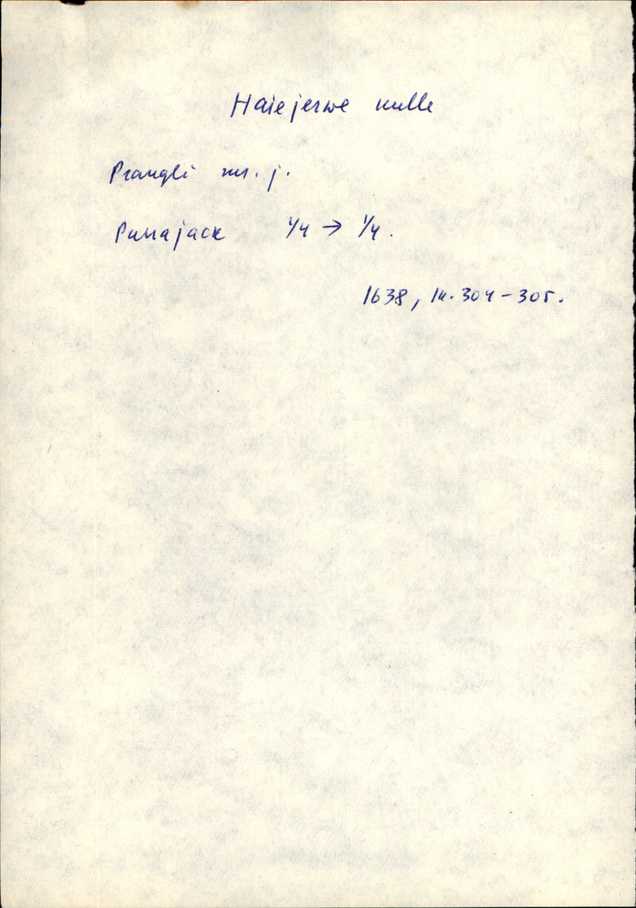 Haiejerwe kulle
Prangli ms. j.
Purrajack 1/4 → 1/4.
1638, lk. 304-305.